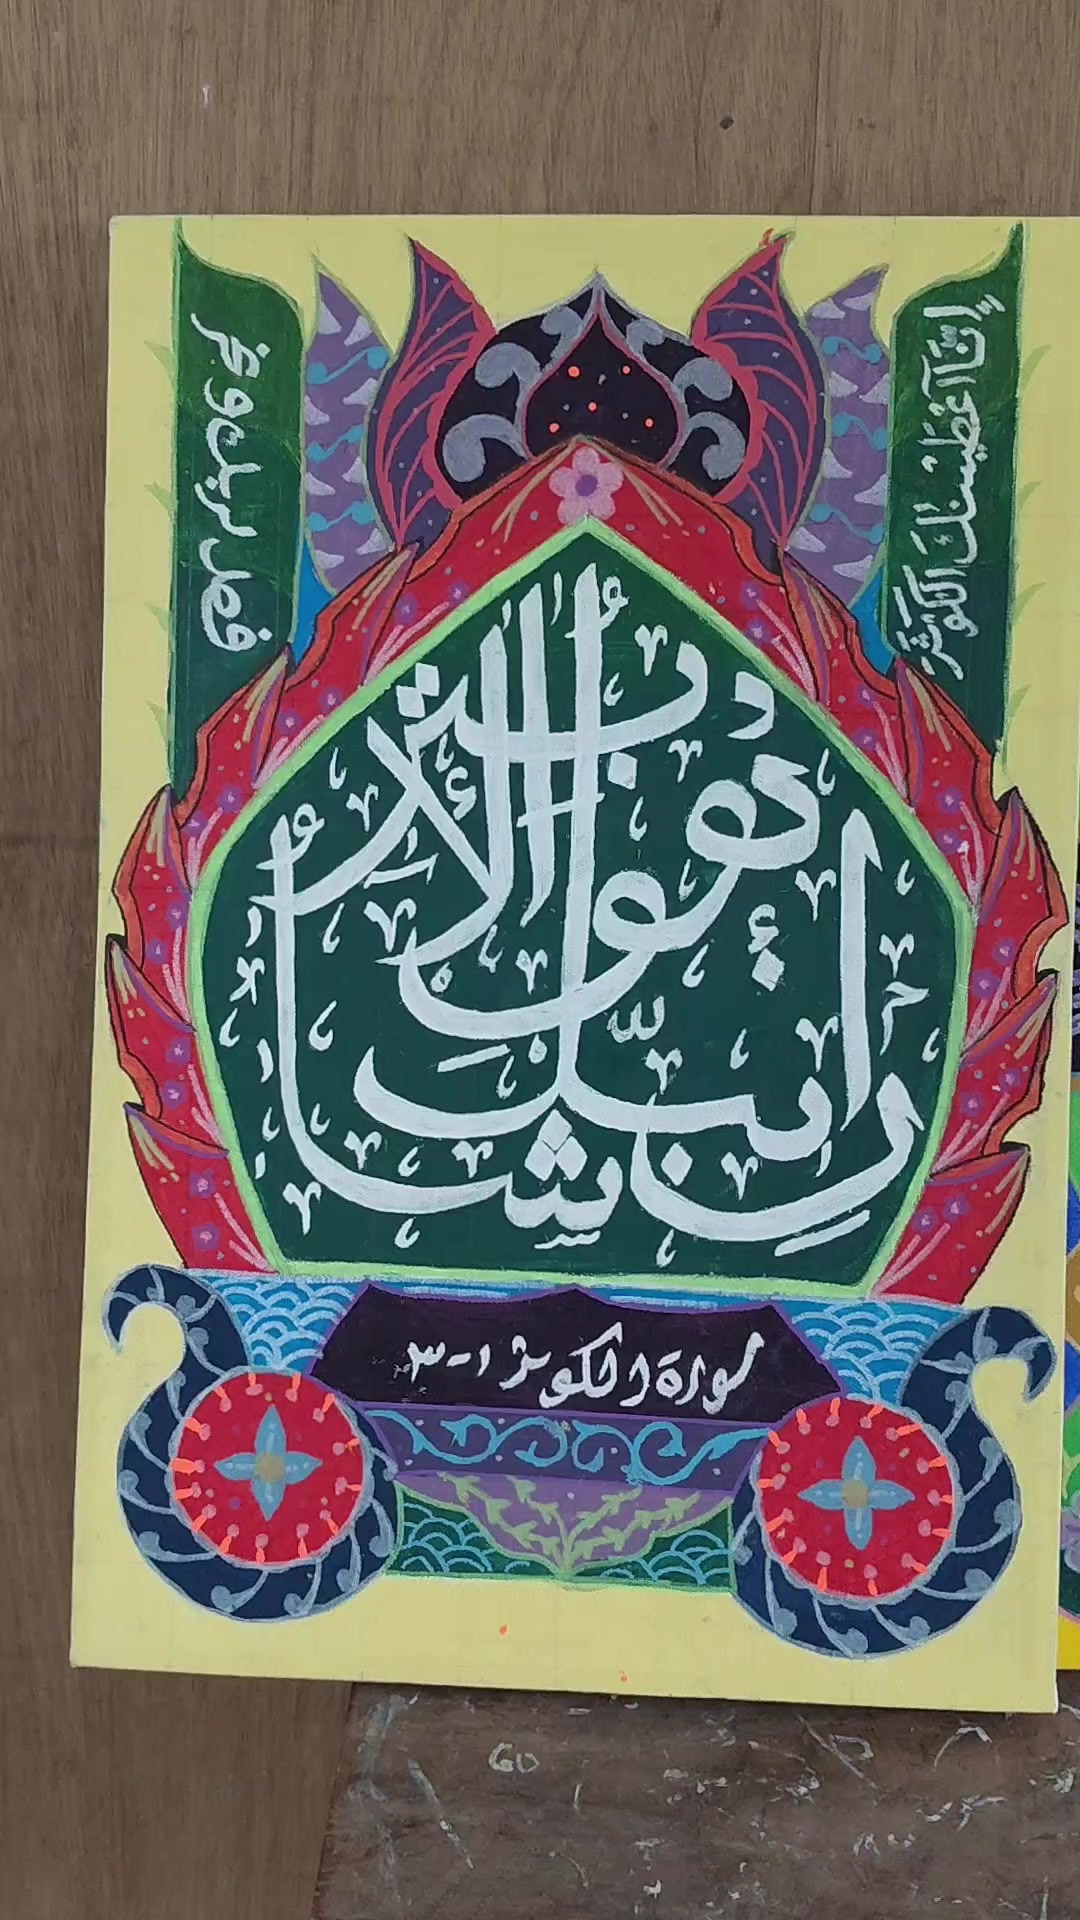 إِنَّآ أَعْطَيْنٰكَ الْكَوْثَرَ
فصل لربك وانحر
إِنَّ شَانِئَكَ هُوَ الْأَبْتَرُ
سورة الكوثر ١-٣